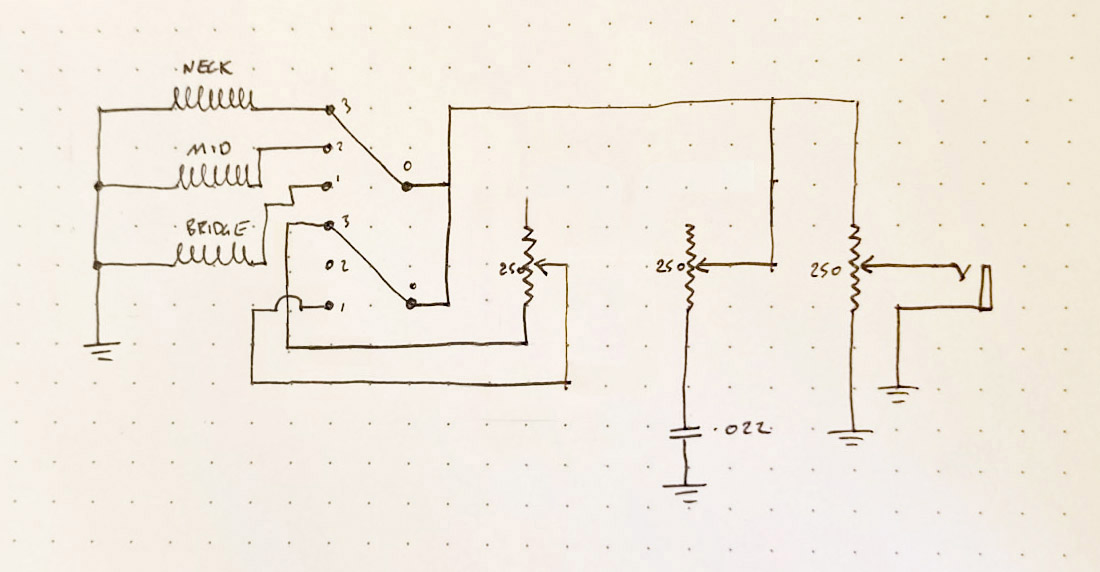 NECK
3
MID
2
0
1
BRIDGE
3
2
0
1
250
250
250
.022